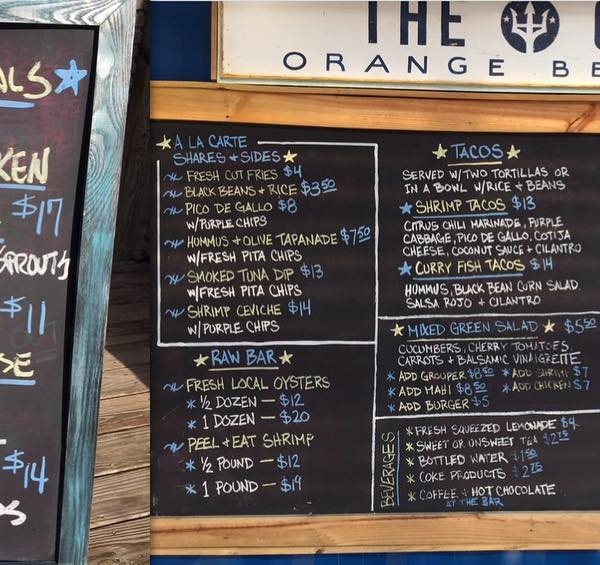 ALS
KEN
$17
SPROUTS
$11
SE
$14
THE
ORANGE BE
A LA CARTE
SHARES + SIDES
FRESH CUT FRIES $4
BLACK BEANS + RICE $3.50
PICO DE GALLO $8
W/PURPLE CHIPS
HUMMUS + OLIVE TAPANADE $7.50
W/FRESH PITA CHIPS
SMOKED TUNA DIP $13
W/FRESH PITA CHIPS
SHRIMP CEVICHE $14
W/PURPLE CHIPS
RAW BAR
FRESH LOCAL OYSTERS
* 1/2 DOZEN — $12
* 1 DOZEN — $20
PEEL + EAT SHRIMP
* 1/2 POUND — $12
* 1 POUND — $19
TACOS
SERVED W/TWO TORTILLAS OR
IN A BOWL W/RICE + BEANS
SHRIMP TACOS $13
CITRUS CHILI MARINADE, PURPLE
CABBAGE, PICO DE GALLO, COTIJA
CHEESE, COCONUT SAUCE + CILANTRO
CURRY FISH TACOS $14
HUMMUS, BLACK BEAN CORN SALAD
SALSA ROJO + CILANTRO
MIXED GREEN SALAD $5.50
CUCUMBERS, CHERRY TOMATOES,
CARROTS + BALSAMIC VINAIGRETTE
* ADD GROUPER $8.50 * ADD SHRIMP $7
* ADD MAHI $8.50 * ADD CHICKEN $7
* ADD BURGER $5
BEVERAGES
* FRESH SQUEEZED LEMONADE $4
* SWEET OR UNSWEET TEA $2.75
* BOTTLED WATER $1.50
* COKE PRODUCTS $2.75
* COFFEE + HOT CHOCOLATE
AT THE BAR